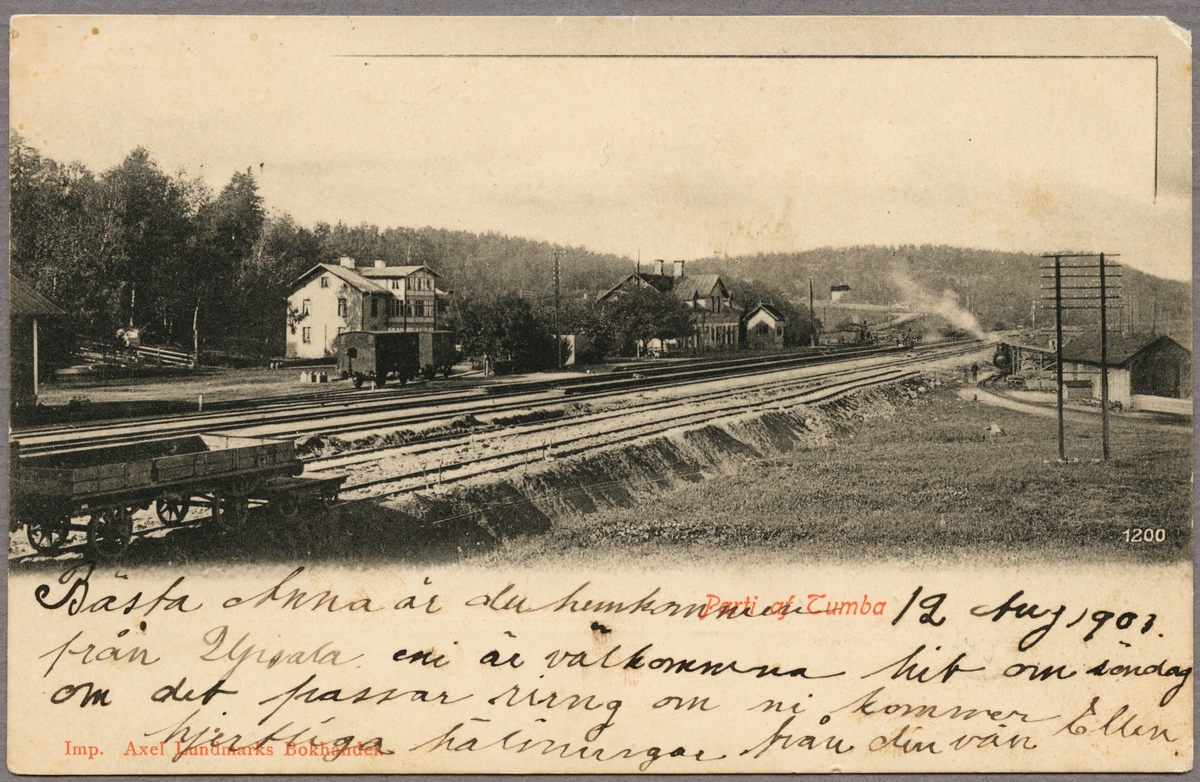 1200
Parti af Tumba
Bästa Anna är du hemkommen 12 Aug 1901.
från Upsala. eni är välkommna hit om söndag
om det passar ring om ni kommer Ellen
hjertliga hälsningar från din vän
Imp. Axel Lundmarks Bokhandel